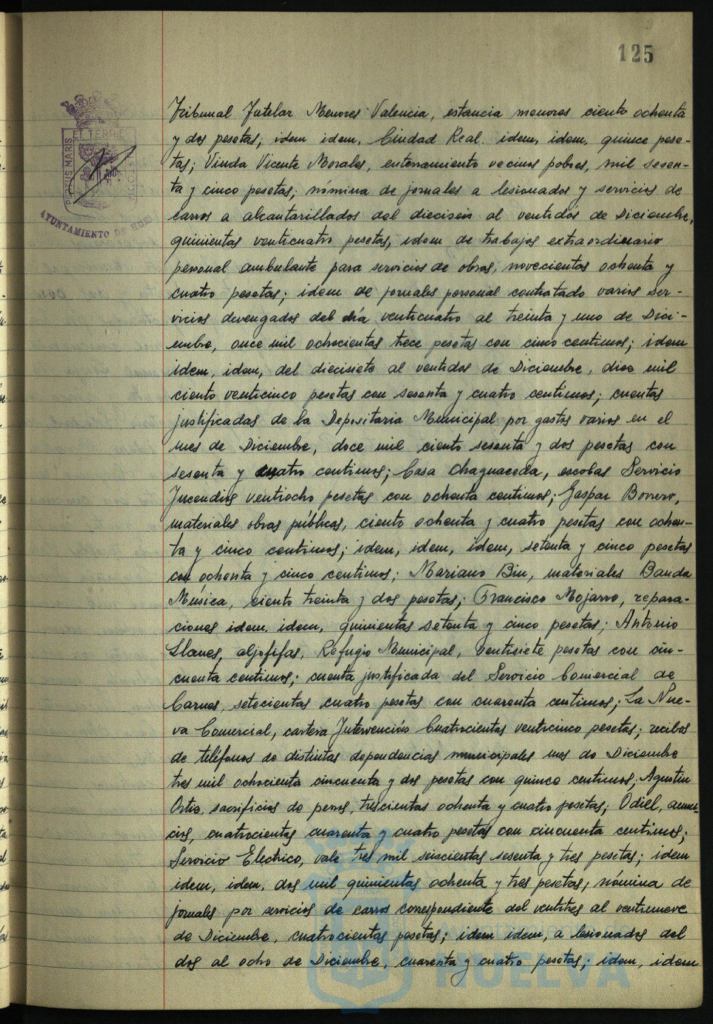 125
PORTUS MARIS ET TERRE
AYUNTAMIENTO DE
Tribunal Tutelar Menores Valencia, estancia menores ciento ochenta
y dos pesetas; idem idem, Ciudad Real idem, idem, quince pese-
tas; Viuda Vicente Morales, enterramiento vecinos pobres, mil sesen-
ta y cinco pesetas; nómina de jornales a lesionados y servicios de
carros a alcantarillados del dieciseis al ventidos de Diciembre,
quinientas venticuatro pesetas, idem de trabajos extraordinario
personal ambulante para servicios de obras, novecientas ochenta y
cuatro pesetas; idem de jornales personal contratado varios ser-
vicios devengados del día venticuatro al treinta y uno de Dici-
embre, once mil ochocientas trece pesetas con cinco centimos; idem
idem, idem, del diecisiete al ventidos de Diciembre, diez mil
ciento venticinco pesetas con sesenta y cuatro centimos; cuentas
justificadas de la Depositaria Municipal por gastos varios en el
mes de Diciembre, doce mil ciento sesenta y dos pesetas con
sesenta y cuatro centimos; Casa Chaguaceda, escobas Servicio
Incendios ventiocho pesetas con ochenta centimos; Gaspar Borrero,
materiales obras públicas, ciento ochenta y cuatro pesetas con ochen-
ta y cinco centimos; idem, idem, idem, setenta y cinco pesetas
con ochenta y cinco centimos; Mariano Biu, materiales Banda
Música, ciento treinta y dos pesetas; Francisco Mojarro, repara-
ciones idem idem, quinientas setenta y cinco pesetas; Antonio
Llanes, aljofifas, Refugio Municipal, ventisiete pesetas con cin-
cuenta centimos; cuenta justificada del Servicio Comercial de
Carnes, setecientas cuatro pesetas con cuarenta centimos; La Nue-
va Comercial, cartera Intervención Cuatrocientas venticinco pesetas; recibos
de teléfonos de distintas dependencias municipales mes de Diciembre
tres mil ochocienta cincuenta y dos pesetas con quince centimos; Agustin
Ortiz, sacrificios de perros, trescientas ochenta y cuatro pesetas; Odiel, anun-
cios, cuatrocientas cuarenta y cuatro pesetas con cincuenta centimos;
Servicio Electrico, vale tres mil seiscientas sesenta y tres pesetas; idem
idem, idem, dos mil quinientas ochenta y tres pesetas, nómina de
jornales por servicios de carros correspondiente del ventitres al ventinueve
de Diciembre, cuatrocientas pesetas; idem idem, a lesionados del
dos al ocho de Diciembre, cuarenta y cuatro pesetas; idem, idem
HUELVA